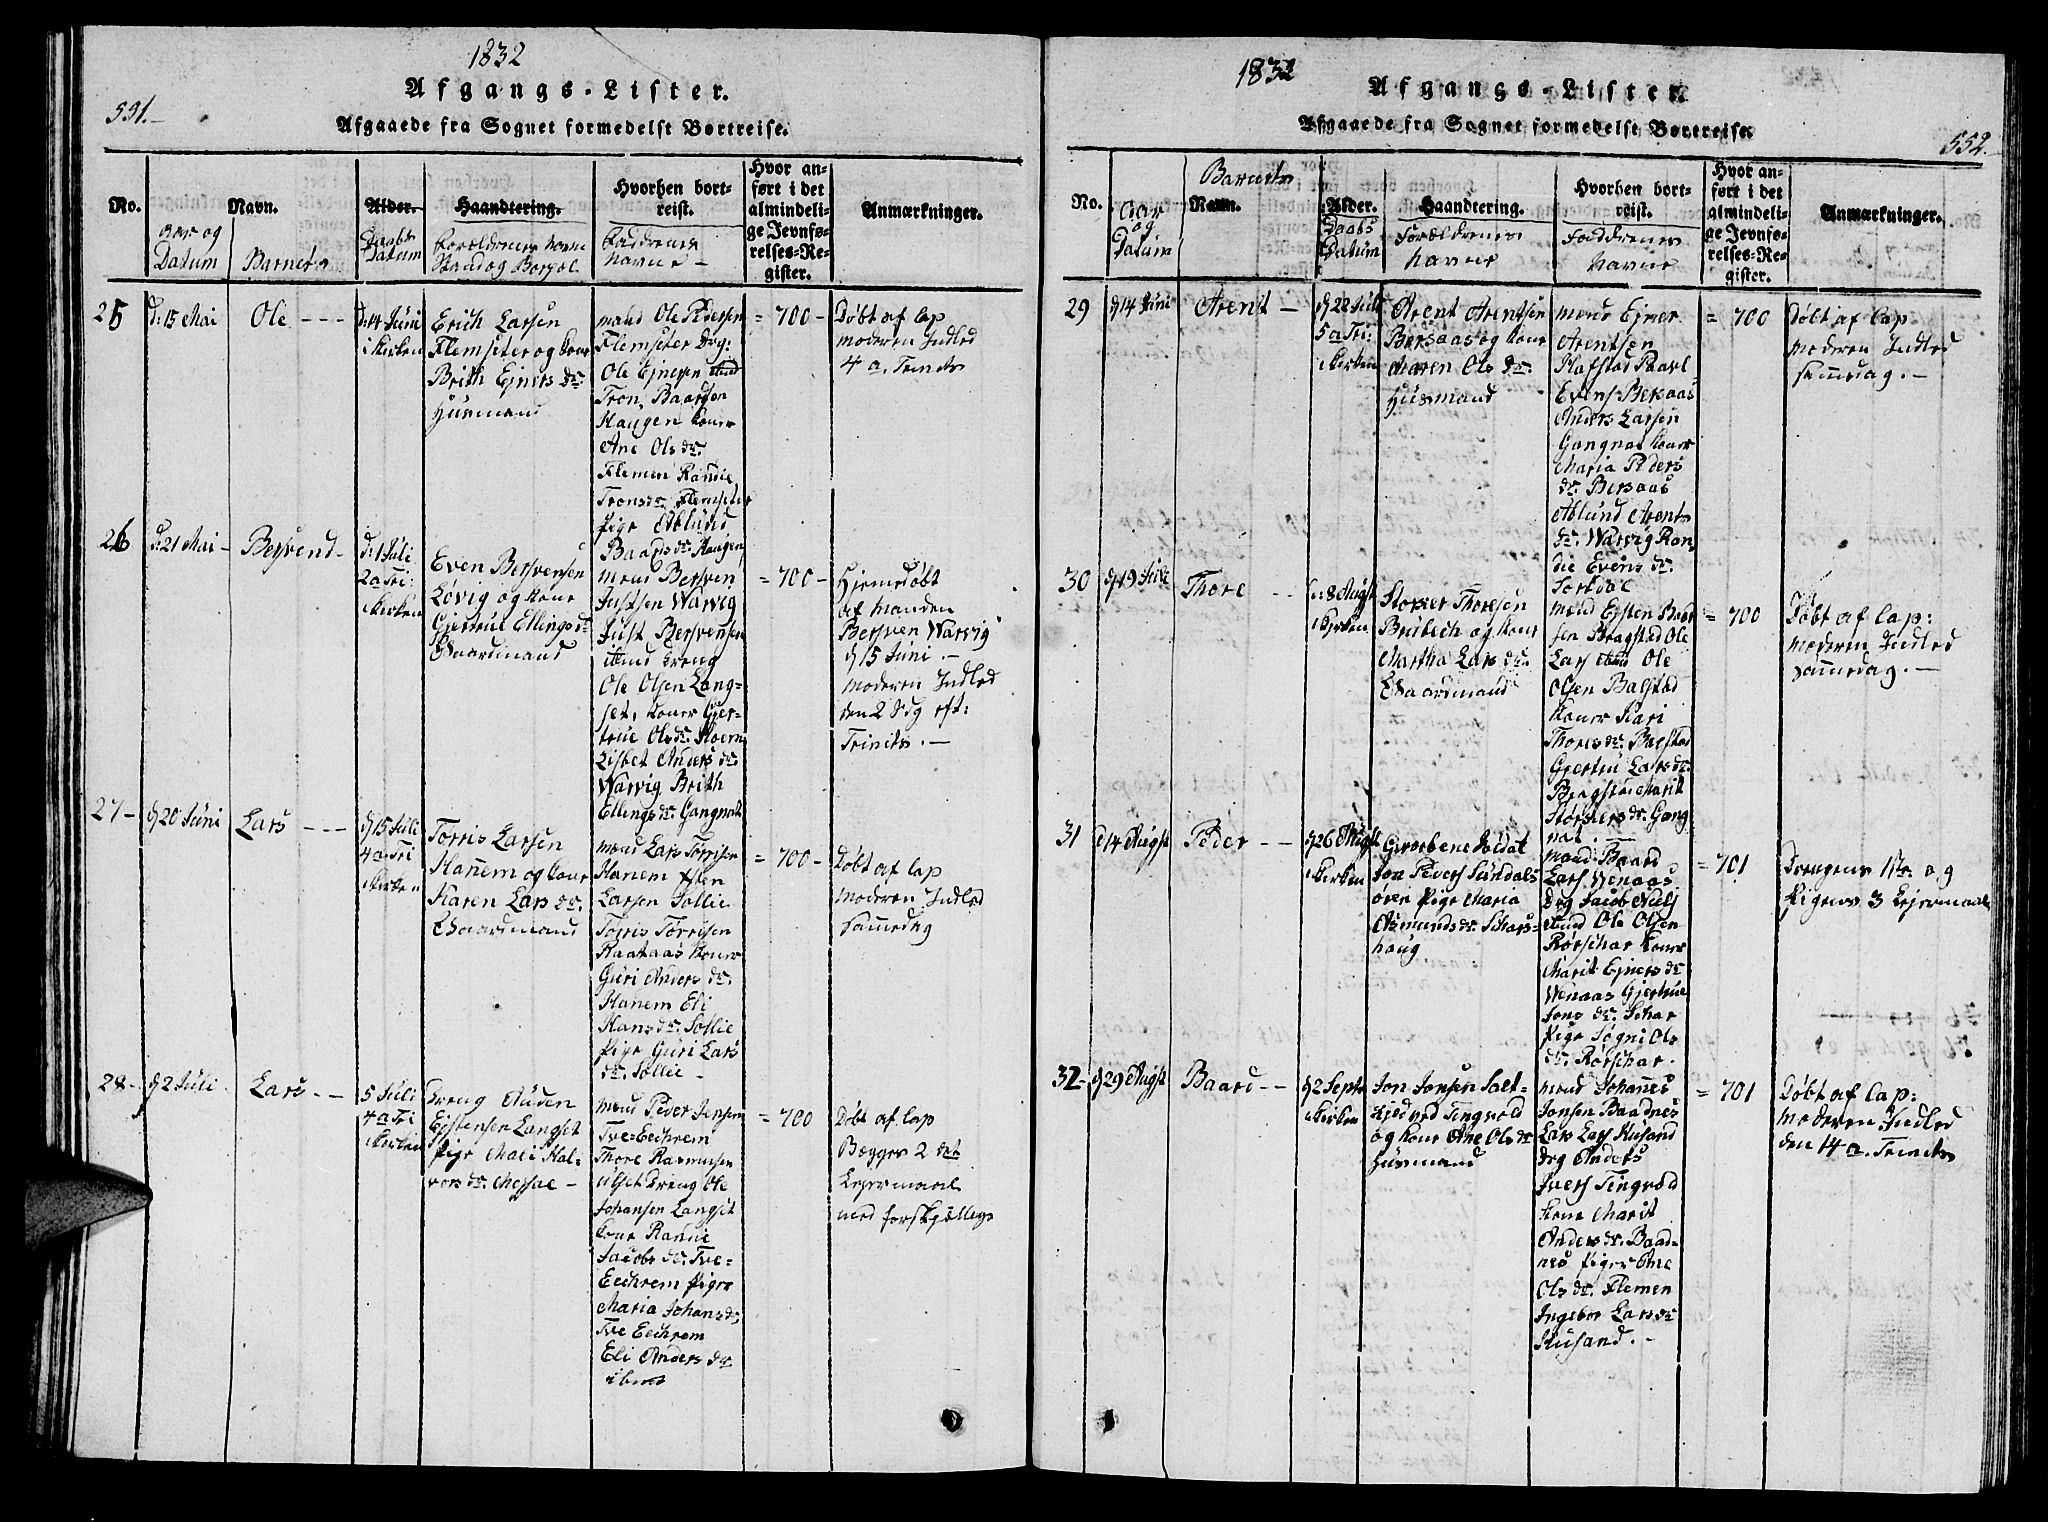 1832
Afgangs-Lister.
591.-
Afgaaede fra Sognet formedelst Bortreise.
No.
Navn.
Alder.
Haandtering.
Hvorhen bort-
reist.
Hvor an-
ført i det
almindeli-
ge Jevnfø-
relses-Re-
gister.
Anmærkninger.
Aar og
Datum
Barnets
Daabs
Datum
Forældrenes Navne
Stand og Bopæl
Faddrenes
Navne -
25
d: 15 Mai
Ole - - -
d: 14 Juni
i Kirken
Erich Larsen
Flemseter og Kone
Brith Ejners dr.
Husmand
mænd Ole Pedersen
Flemseter Drg:
Ole Ejnesen
Tron, Baardsen
Haugen Koner
Ane Ols dr.
Flemen Randie
Trons dr. Flemseter
Pige Ablund
Baards dr. Haugen
= 700 -
Døbt af Cap
moderen Indled
4 a. Trinits
26
d: 21 Mai -
Bersvend -
d: 1 Juli
2 a Tri:
i Kirken
Even Bersvensen
Løvig og Kone
Gjertrue Ellings dr
Gaardmand
mænd Bersven
Justsen Warvig
Just Bersvensen
ibmd Dreng
Ole Olsen Lang-
set, Koner Gjer-
true Ols dr. Hoem
Lisbet Anders dr.
Warvig Brith
Ellings dr. Gangnat
= 700 -
Hjemedøbt
af Manden
Bersven Warvig
d 15 Juni -
Moderen Indled
den 2 Sdg eft:
Trinits. -
27 -
d 20 Juni
Lars - - -
d 15 Juli
4 a Tri
i Kirken
Torris Larsen
Hanem og Kone
Karen Lars dr.
Gaardmand
mænd Lars Torrisen
Hanem Esten
Larsen Sollie
Torris Torrisen
Raataas Koner
Guri Anders dr.
Hanem Eli
Hans dr. Sollie
Pige Guri Lars
dr. Sollie -
= 700 -
Døbt af Cap
moderen Indled
Samedag
28 -
d 2 Juli -
Lars - -
5 Juli
4 a Tri
i Kirken
Dreng Auden
Eistensen Langset
Pige Mari Hal-
vors dr. Messe -
mænd Peder Jensen
Tve-Eechrem
Thore Rasmusen
ulset Dreng Ole
Johansen Langset
Kone Randie
Jacobs dr. Tve-
Eechrem Piger
Maria Johans dr.
Tve Eechrem
Eli Anders dr.
ibmd
= 700
Døbt af Cap
Begges 2 det
Lejermaal
med forskjellige
1832
Afgangs-Lister.
Afgaaede fra Sognet formedelst Bortreise.
552.
No.
Aar
og
Datum
Barnets
Navn.
Alder.
Daabs
Datum
Haandtering.
Forældrenes
Navne
Hvorhen bort-
reist.
Faddrenes
Navne
Hvor an-
ført i det
almindeli-
ge Jevnfø-
relses-Re-
gister.
Anmærkninger.
29
d 14 Juni
Arent -
d 22 Juli
5 a Tri:
i Kirken
Arent Arentsen
Bersaas og Kone
Maren Ols dr.
Husmand
mænd Ejner
Arentsen
Hafstad Paavl
Evens. Bersaas
Anders Larsen
Gangnat Koner
Maria Peders
dr. Bersaas
Ablund Arents
dr. Warvig Ran-
die Evens dr.
Torkdal
= 700
Døbt af Cap
Moderen Indled
samedag. -
30
d 19 Juli
Thore - -
d: 8 Augst
i Kirken
Størker Thoresen
Brubech og Kone
Martha Lars dr.
Gaardmand
mænd Eysten Baar
sen Bragstad Ole
Lars ibmd Ole
Olsen Balstad
Koner Kari
Thores dr. Balstad
Gjertru Lars dr.
Bragstad Marit
Størkers dr. Gang-
nat. -
= 700
Døbt af Cap:
moderen Indled
samedag. -
31
d 14 Augst
Peder - -
d 26 Augst
i Kirken
Gevorbene Soldat
Jon Peders Sundals
øren Pige Maria
Asmunds dr. Schars-
haug
mænd Baard
Lars. Wenaas
Drg Jacob Niels
ibmd Ole Olsen
Rørschar Koner
Marit Ejners dr
Wenaas Gjertrue
Jons dr. Schar
Pige Søgni Ols
dr. Rørschar.
= 701
Drengens 1ste og
Pigens 3 Lejermaal
32 -
d 29 Augst
Baard - -
d 2 Septr
i Kirken
Jon Jonsen Salt-
kjedved Tingvold
og Kone Ane Ols dr
Husmand
mænd Johannes
Jonsen Baadnes
Lars Lars Husand
Drg Anders
Ivers Tingvold
Kone Marit
Anders dr. Baad-
nes Piger Ane
Ols dr. Flemen
Ingebor Lars dr
Husand. -
= 701
Døbt af Cap:
moderen Indled
den 14 a. Trinits